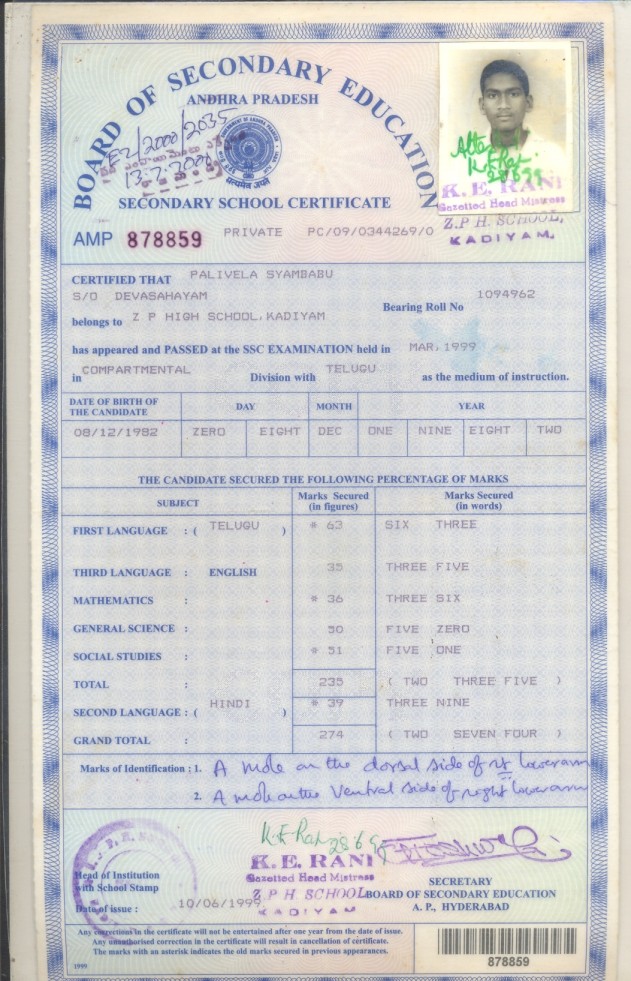 BOARD OF SECONDARY EDUCATION
ANDHRA PRADESH
E2/2000/2035
13.7.2000
सत्यमेव जयते
SECONDARY SCHOOL CERTIFICATE
Attested
28699
K. E. RANI
Gazetted Head Mistress
Z.P H. SCHOOL,
KADIYAM.
AMP 878859 PRIVATE PC/09/0344269/0
CERTIFIED THAT PALIVELA SYAMBABU
S/O DEVASAHAYAM
Bearing Roll No 1094962
belongs to Z P HIGH SCHOOL,KADIYAM
has appeared and PASSED at the SSC EXAMINATION held in MAR,1999
in COMPARTMENTAL Division with TELUGU as the medium of instruction.
DATE OF BIRTH OF THE CANDIDATE DAY MONTH YEAR
08/12/1982 ZERO EIGHT DEC ONE NINE EIGHT TWO
THE CANDIDATE SECURED THE FOLLOWING PERCENTAGE OF MARKS
SUBJECT Marks Secured (in figures) Marks Secured (in words)
FIRST LANGUAGE : ( TELUGU ) * 63 SIX THREE
THIRD LANGUAGE : ENGLISH 35 THREE FIVE
MATHEMATICS : * 36 THREE SIX
GENERAL SCIENCE : 50 FIVE ZERO
SOCIAL STUDIES : * 51 FIVE ONE
TOTAL : 235 ( TWO THREE FIVE )
SECOND LANGUAGE : ( HINDI ) * 39 THREE NINE
GRAND TOTAL : 274 ( TWO SEVEN FOUR )
Marks of Identification : 1. A mole on the dorsal side of rt lowerarm
2. A mole on the Ventral side of right lowerarm
K. E. RANI
Gazetted Head Mistress
Z.P H. SCHOOL
KADIYAM
Head of Institution
with School Stamp
Date of issue : 10/06/1999
SECRETARY
BOARD OF SECONDARY EDUCATION
A. P., HYDERABAD
Any corrections in the certificate will not be entertained after one year from the date of issue.
Any unauthorised correction in the certificate will result in cancellation of certificate.
The marks with an asterisk indicates the old marks secured in previous appearances.
1999
878859